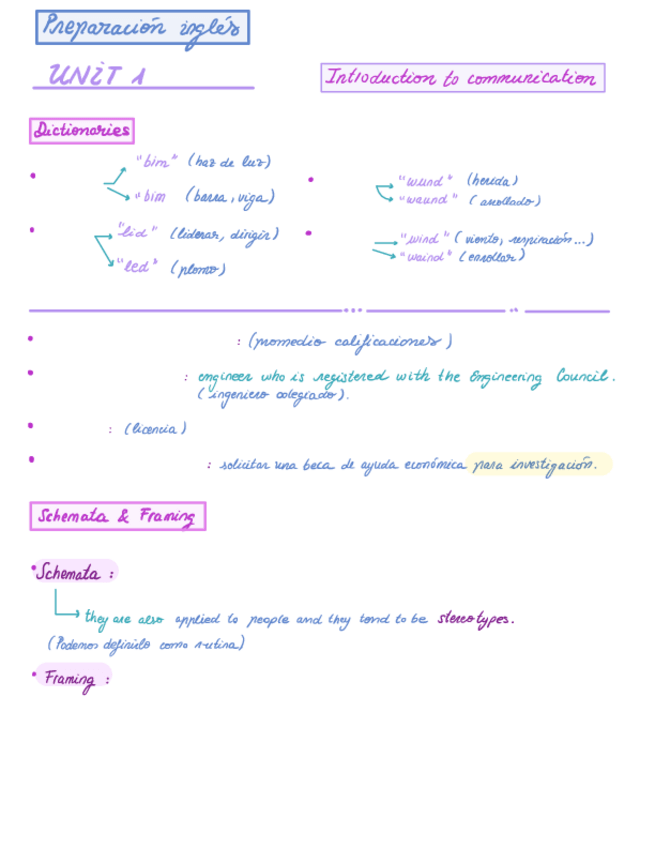 Preparación inglés
UNIT 1
Introduction to communication
Dictionaries
"bim" (haz de luz)
"bim (barra, viga)
"wund" (herida)
"waund" (arrollado)
"lid" (liderar, dirigir)
"led" (plomo)
"wind" (viento, respiración...)
"waind" (enrollar)
: (promedio calificaciones)
: engineer who is registered with the Engineering Council.
(ingeniero colegiado).
: (licencia)
: solicitar una beca de ayuda económica para investigación.
Schemata & Framing
Schemata :
they are also applied to people and they tend to be stereotypes.
(Podemos definirlo como rutina)
Framing :